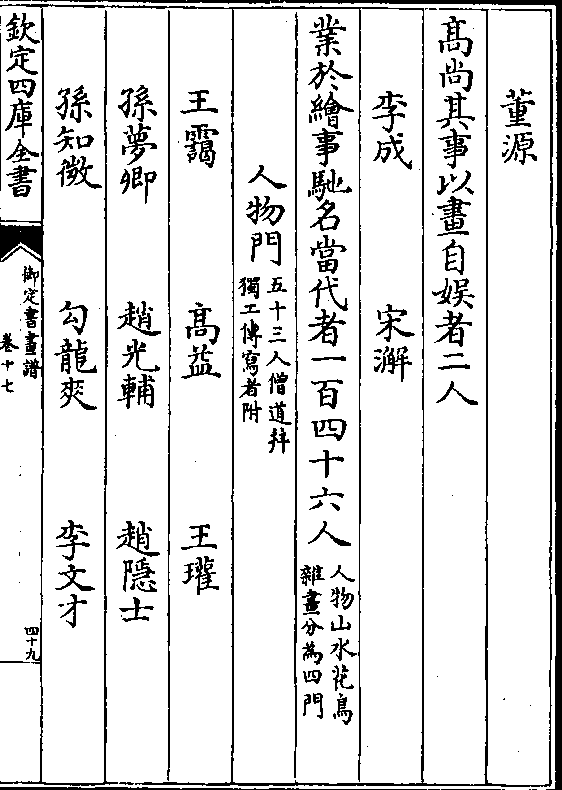 董源
髙尚其事以畫自娯者二人
李成　宋澥
業於繪事馳名當代者一百四十六人人物山水花鳥雜畫分為四門
人物門五十三人僧道并獨工傳寫者附
王靄　髙益　王瓘
孫夢卿　趙光輔　趙隱士
孫知微　勾龍爽　李文才
欽定四庫全書　御定書畫譜　卷十七　四十九